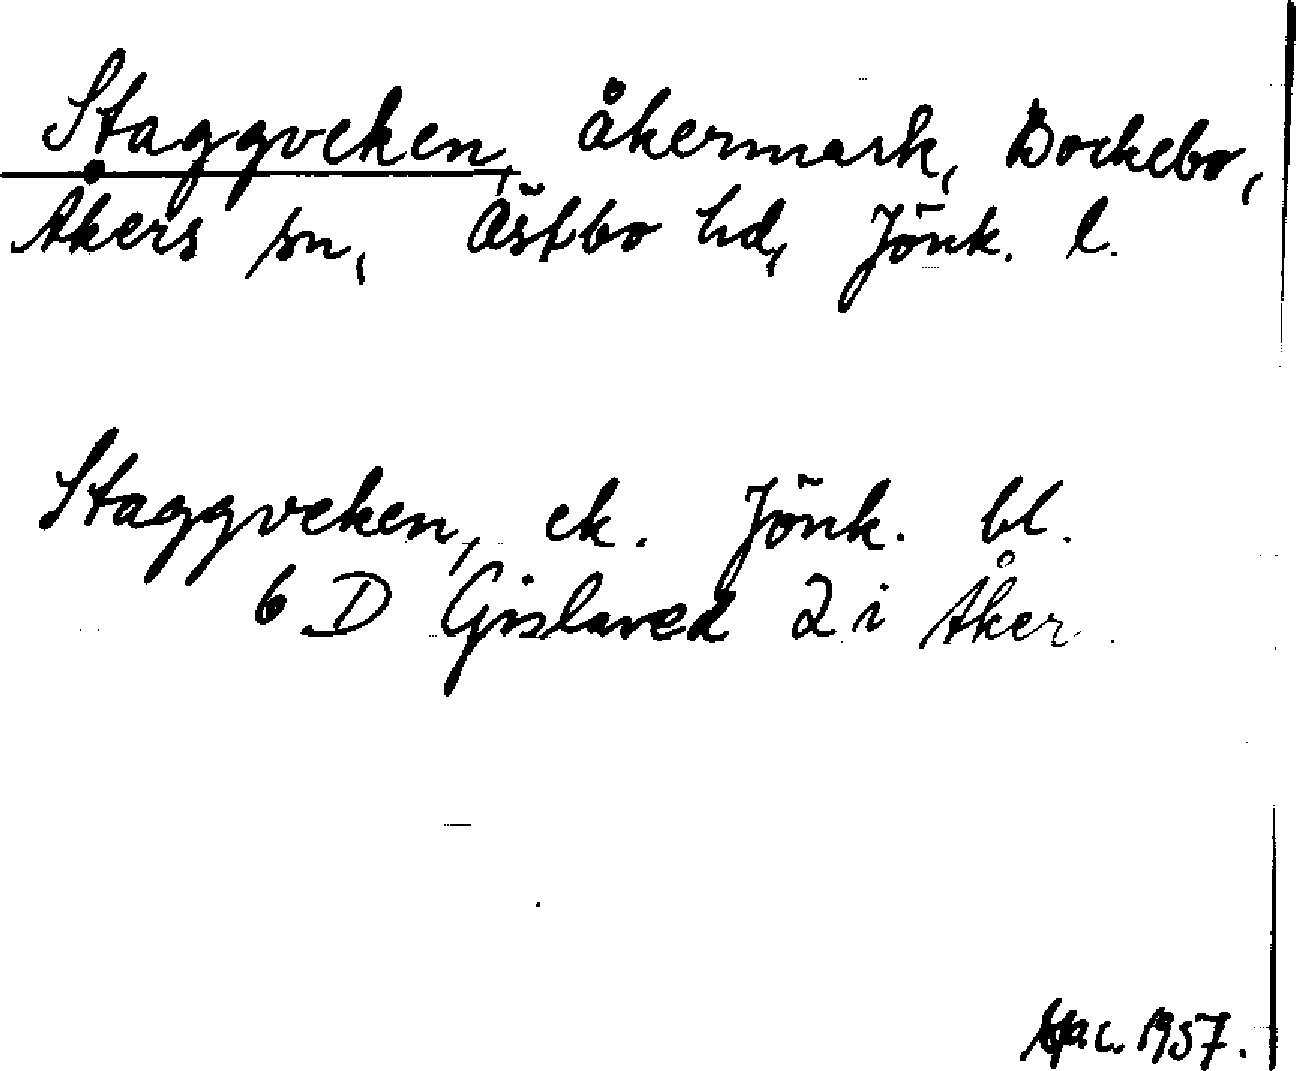 Staggveken, åkermark, Bockebo,
Åkers sn, Östbo hd, Jönk. l.
Staggveken, ek. Jönk. bl.
6 D Gislaved 2 i Åker
c. 1957.